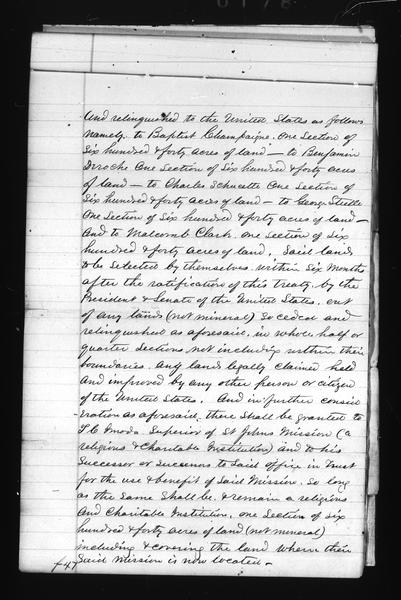 And relinquished to the United States as follows
namely, to Baptist Champaigne, One Section of
Six hundred & forty acres of land — to Benjamin
Deroche One Section of Six hundred & forty acres
of land — to Charles Schucette One Section of
Six hundred & forty acres of land — to George Steelle
One Section of Six hundred & forty acres of land —
And to Malcomb Clark, One Section of Six
hundred & forty acres of land, Said lands
to be Selected by themselves within Six Months
after the ratification of this treaty, by the
President & Senate of the United States, out
of any lands (not mineral) So ceded and
relinquished as aforesaid, in whole, half or
quarter Sections, not including within their
boundaries, any lands legally claimed held
And improved by any other person or citizen
of the United States. And in further consid
-eration as aforesaid, there Shall be granted to
Imoda Superior of St Johns Mission (a
religious & Charitable Institution) and to his
Successor or Successors to Said office in trust
for the use & benefit of Said Mission, So long
as the Same Shall be & remain a religious
And Charitable Institution, One Section of Six
hundred & forty acres of land (not mineral)
including & covering the land where their
Said Mission is now located —